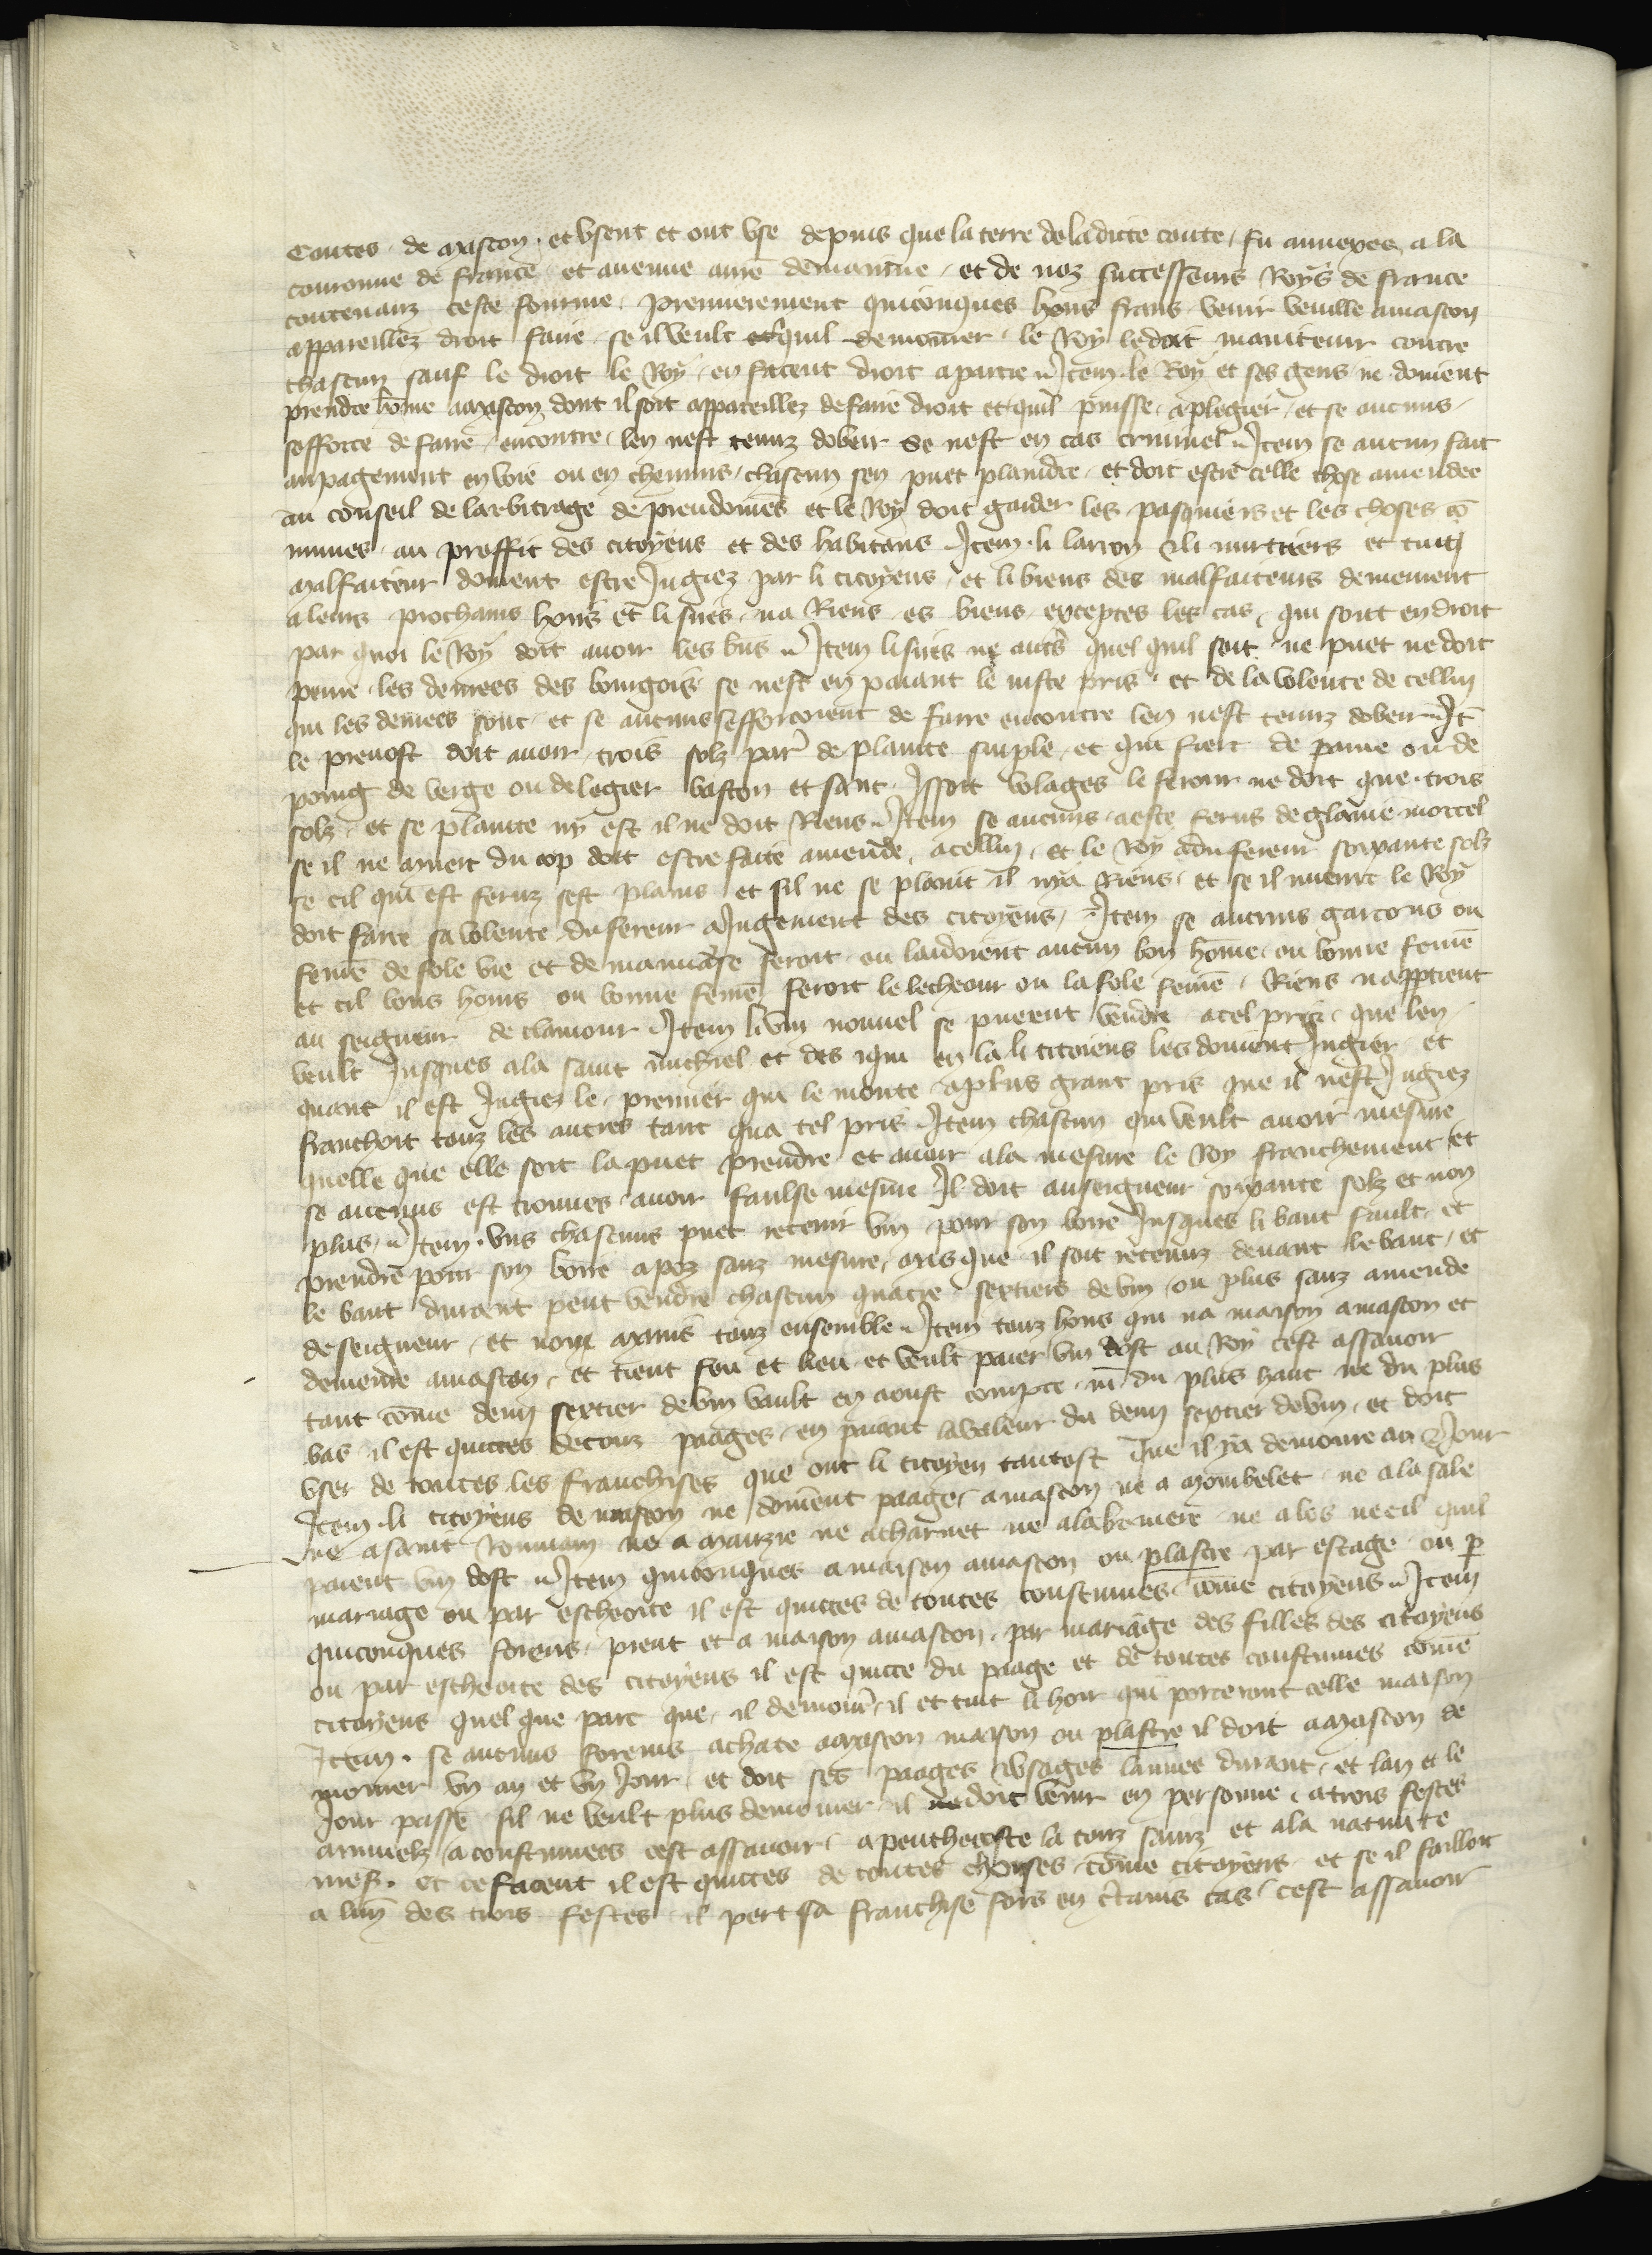 Contes de Mascon et usent et ont use depuis que la terre de ladicte conte fu annexee a la
couronne de france et avenue a nre demainne et de noz successeurs Roys de france
contenanz ceste fourme premierement quiconques hons frans venir veuille a mascon
appareillez droit faire se il veult et quil demourer le Roy le doit maintenir contre
chascun sauf le droit le Roy en facent droit a partie Item le Roy et ses gens ne doivent
prendre home a mascon dont il soit appareillez de faire droit et quil puisse aplegier et se aucuns
sefforce de faire encontre len nest tenuz dobeir se nest en cas criminel Item se aucun fait
anpagement en voie ou en chemins chascun sen puet plaindre et doit estre celle chose amendee
au conseil de larbitrage de preudomes et le Roy doit garder les pasquiers et les choses co
munes au proffit des citoyens et des habitans Item li larron & li murtriers et tuit
malfaiteur doivent estre Jugiez par li citoyens et li biens des malfaiteurs demeurent
a leurs prochains hoirs et li sires na Riens es biens exceptes les cas qui sont en droit
par quoi le Roy doit avoir les bns Item li sires ne autres quel quil soit ne puet ne doit
penre les denrees des bourgois se nest en paiant le iuste pris et de la volente de cellui
qui les denrees sont et se aucuns sefforcoient de faire encontre len nest tenuz dobeir It
le prevost doit avoir trois solz par de plainte simple et qui fiert de paume ou de
poing de verge ou de legier baston et sanc Issoit volages le fereur ne doit que trois
solz et se plainte ny est il ne doit Riens Item se aucuns a este ferus de glaive mortel
se il ne muert du cop doit estre faite amende a cellui et le Roy a du fereur soixante solz
se cil qui est feruz sest plains et sil ne se plaint il nya Riens et se il muert le Roy
doit faire sa volente du fereur a Jugement des citoyens Item se aucuns garcons ou
feme de fole vie et de mauvaise feroit ou laidoient aucun bon home ou bonne feme
et cil bons homs ou bonne feme feroit le lecheour ou la fole feme Riens napptient
au seigneur de clamour Item li vin nouvel se puevent vendre a tel pris que len
veult Jusques a la saint michiel et des iqui en la li citoiens les doivent Jugier et
quant il est Jugiez le premier qui le monte a plus grant pris que il nest Jugiez
franchoit touz les autres tant qua tel pris Item chascun qui veult avoir mesure
quelle que elle soit la puet prendre et avoir a la mesure le Roy franchement et
se aucuns est trouves avoir faulse mesure Il doit au seigneur soixante solz et non
plus Item uns chascuns puet retenir vin pour son boire Jusques li bant fault et
prendre pour son boire a poz sanz mesure mes que il soit retenuz devant le bant et
le bant durant peut vendre chascun quatre sextiers de vin ou plus sanz amende
de seigneur et non mains touz ensemble Item touz hons qui na maison a mascon et
demeure a mascon et tient feu et lieu et veult paier vin dost au Roy cest assavoir
tant come demi sextier de vin vault en aoust compte ni du plus haut ne du plus
bas il est quittes de touz paages en paiant la valeur du demi sextier de vin et doit
user de toutes les franchises que ont li citoyen tantost que il ya demoure an & Jour
Item li citoyens de mascon ne doivent paage a mascon ne a mombelet ne a la sale
ne a saint Rommain ne a mauzie ne a charnet ne a la bruiere ne a les ne cil quil
paient vin dost Item quiconques a maison a mascon ou plastre par estage ou p
mariage ou par escheoite il est quittes de toutes constumes come citoyens Item
quiconques forens prent et a maison a mascon par mariage des filles des citoyens
ou par escheoite des citoyens il est quitte du paage et de toutes constumes come
citoyens quel que part que il demeure il et tuit li hoir qui porteront celle maison
Item se aucuns forens achate a mascon maison ou plastre il doit a mascon de
mourer un an et un Jour et doit ses paages & usages lannee durant et lan et le
Jour passe sil ne veult plus demourer il ne doit venir en personne a trois festes
annuelz aconstumees cest assavoir a penthecoste la touz sainz et a la nativite
nres. et ce facent il est quittes de toutes choses come citoyens et se il failloit
a lune des trois festes il pert sa franchise fors en ctains cas cest assavoir